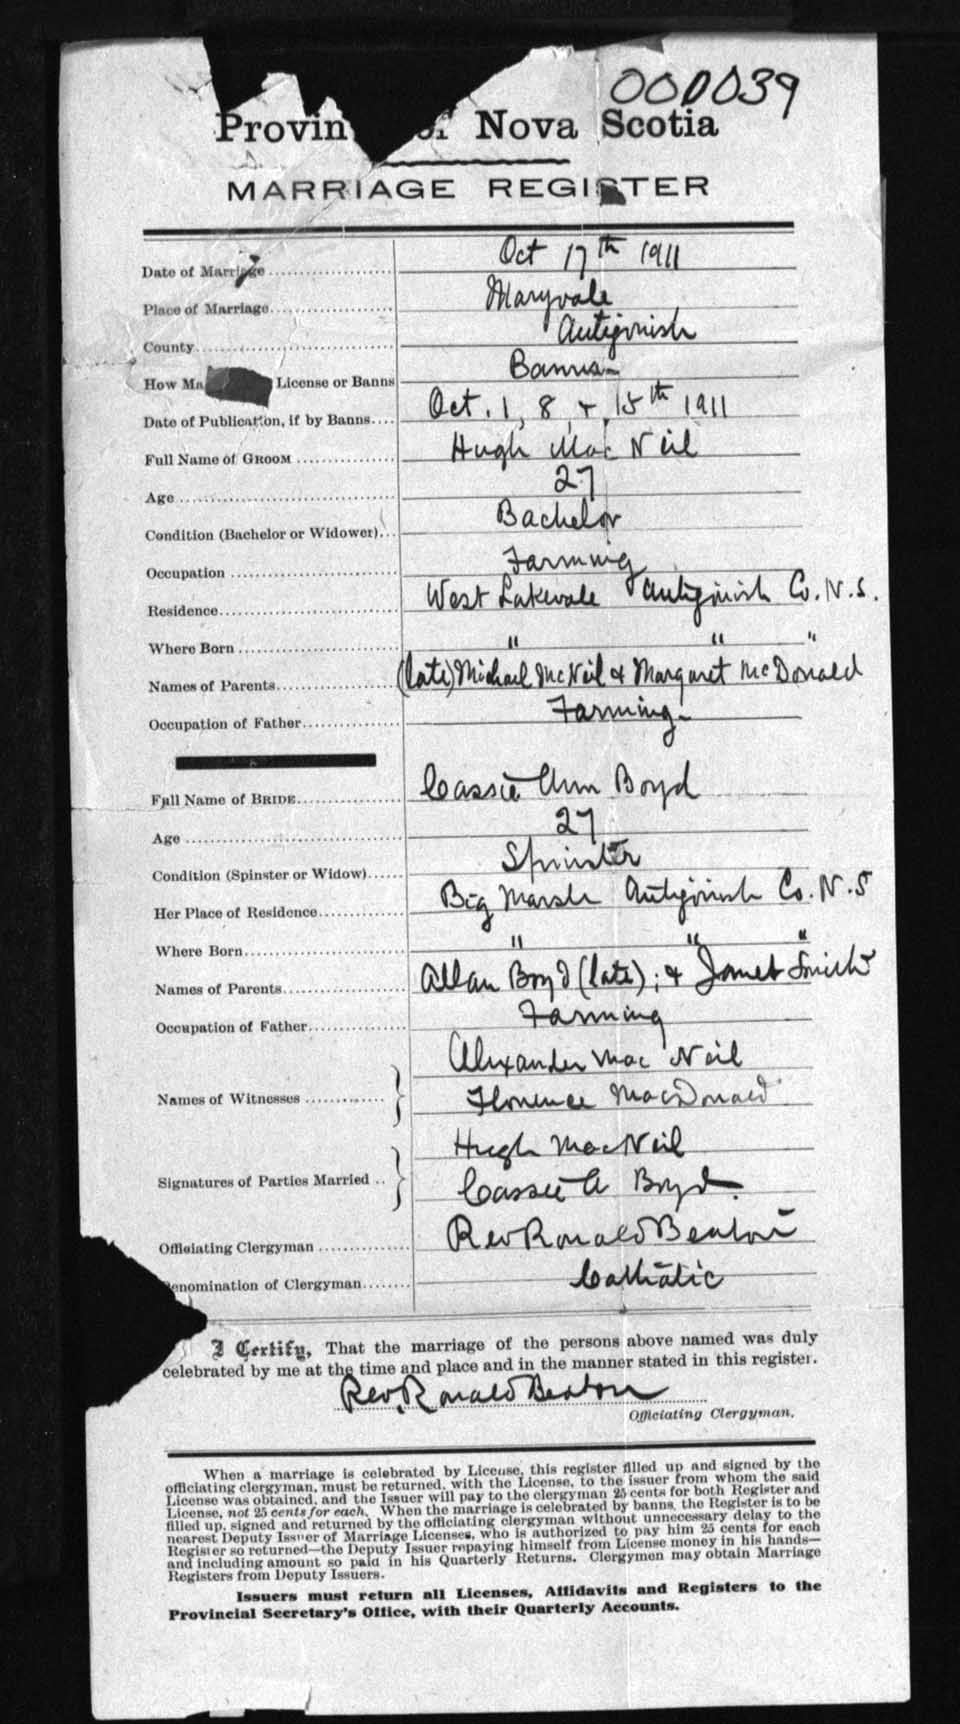 000039
Provin of Nova Scotia
MARRIAGE REGISTER
Date of Marriage Oct 17th 1911
Place of Marriage Maryvale
County Antigonish
How Ma License or Banns Banns
Date of Publication, if by Banns Oct. 1, 8, + 15th 1911
Full Name of GROOM Hugh Mac Neil
Age 27
Condition (Bachelor or Widower) Bachelor
Occupation Farming
Residence West Lakevale Antigonish Co. N.S.
Where Born " " "
Names of Parents (late) Michael McNeil + Margaret McDonald
Occupation of Father Farming
Full Name of BRIDE Cassie Ann Boyd
Age 27
Condition (Spinster or Widow) Spinster
Her Place of Residence Big Marsh Antigonish Co. N.S
Where Born " " "
Names of Parents Allan Boyd (late); + Janet Smith
Occupation of Father Farming
Alexander Mac Neil
Names of Witnesses Florence MacDonald
Hugh MacNeil
Signatures of Parties Married Cassie A Boyd.
Officiating Clergyman Rev Ronald Beaton
enomination of Clergyman Catholic
I Certify, That the marriage of the persons above named was duly
celebrated by me at the time and place and in the manner stated in this register.
Rev. Ronald Beaton
Officiating Clergyman.
When a marriage is celebrated by License, this register filled up and signed by the
officiating clergyman, must be returned, with the License, to the issuer from whom the said
License was obtained, and the Issuer will pay to the clergyman 25 cents for both Register and
License, not 25 cents for each. When the marriage is celebrated by banns, the Register is to be
filled up, signed and returned by the officiating clergyman without unnecessary delay to the
nearest Deputy Issuer of Marriage Licenses, who is authorized to pay him 25 cents for each
Register so returned—the Deputy Issuer repaying himself from License money in his hands—
and including amount so paid in his Quarterly Returns. Clergymen may obtain Marriage
Registers from Deputy Issuers.
Issuers must return all Licenses, Affidavits and Registers to the
Provincial Secretary's Office, with their Quarterly Accounts.